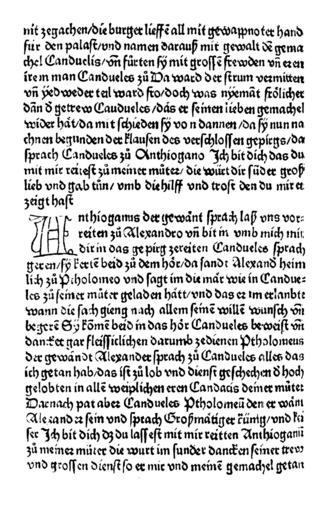 nit zegachen/die burger lieffē all mit gewappnoter hand
für den palast/vnd namen darauß mit gewalt dē gema
chel Canduelis/vn̄ fürten sy mit grossē frewden vn̄ eren
irem man Candueles zů Da ward der strum vermitten
vn̄ yedweder teil ward fro/doch was nyēmāt frölicher
dān d̄ getrew Caudueles/das er seinen lieben gemachel
wider hāt/da mit schieden sy vo n dannen/da sy nun na
chnen begunden der klausen des verschlossen gepirgs/da
sprach Candueles zů Anthiogano Jch bit dich das du
mit mir reitest zů meiner můter/die würt dir sūder groß
lieb vnd gab tůn/ vmb die hilff vnd trost den du mir er
zeigt hast
Anthioganus der gewant sprach laß vns vor-
reiten zů Alexandro vn̄ bit in vmb mich mit
dir in das ge pirg zereiten Candueles sprach
geren/sy kertē beid zů dem hör/da sandt Alexand heim
lich zů Ptholomeo vnd sagt im die mār wie in Candue-
les zů seiner můter geladen hātt/vnd das er im erlaubte
wann die sach gieng nach allem seinē willē wunsch vn̄
begerē Sy kōmē beid in das hör Candueles beweist vn̄
danckt gar fleissiclichen darumb ze dienen Ptholomeus
der gewāndt Alexander sprach zů Candueles alles das
ich getan hab/das ist zů lob vnd dienst geschechen d̄ hoch
gelobten in allē weiplichen eren Candacis deiner můter
Darnach pat aber Candueles Ptholomeū den er wānt
Alexander sein vnd sprach Großmātiger künig/vnd kei
ser Jch bit dich dz du lassest mit mir reitten Anthioganū
zů meiner můter die wurt im sunder dancken seiner trew
vnd grossen dienst so er mir vnd meinē gemachel getan